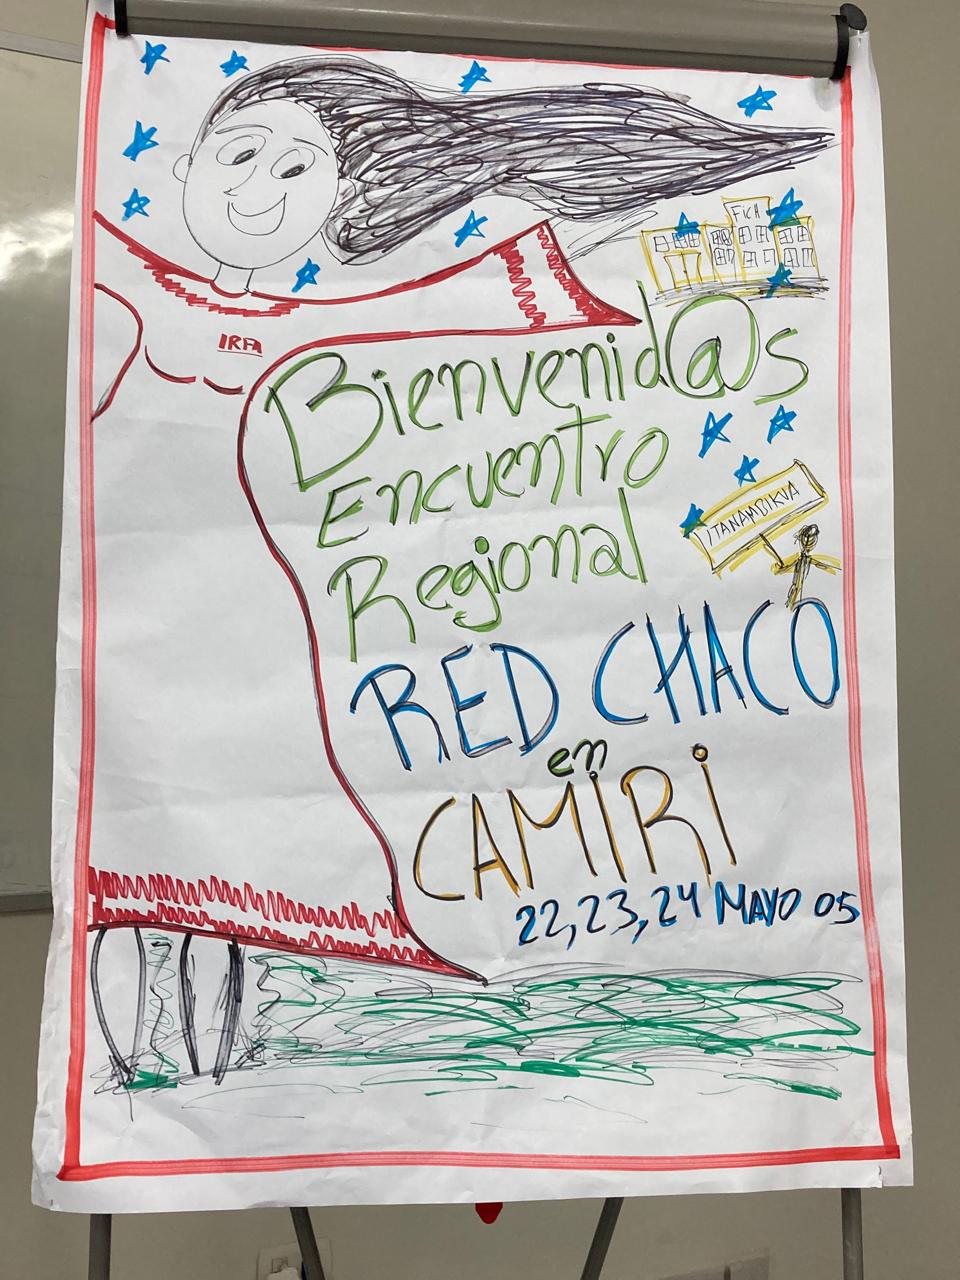 FICH
IRFA
Bienvenid@s
Encuentro
Regional
ITANAMBIKUA
RED CHACO
en
CAMIRI
22, 23, 24 MAYO 05